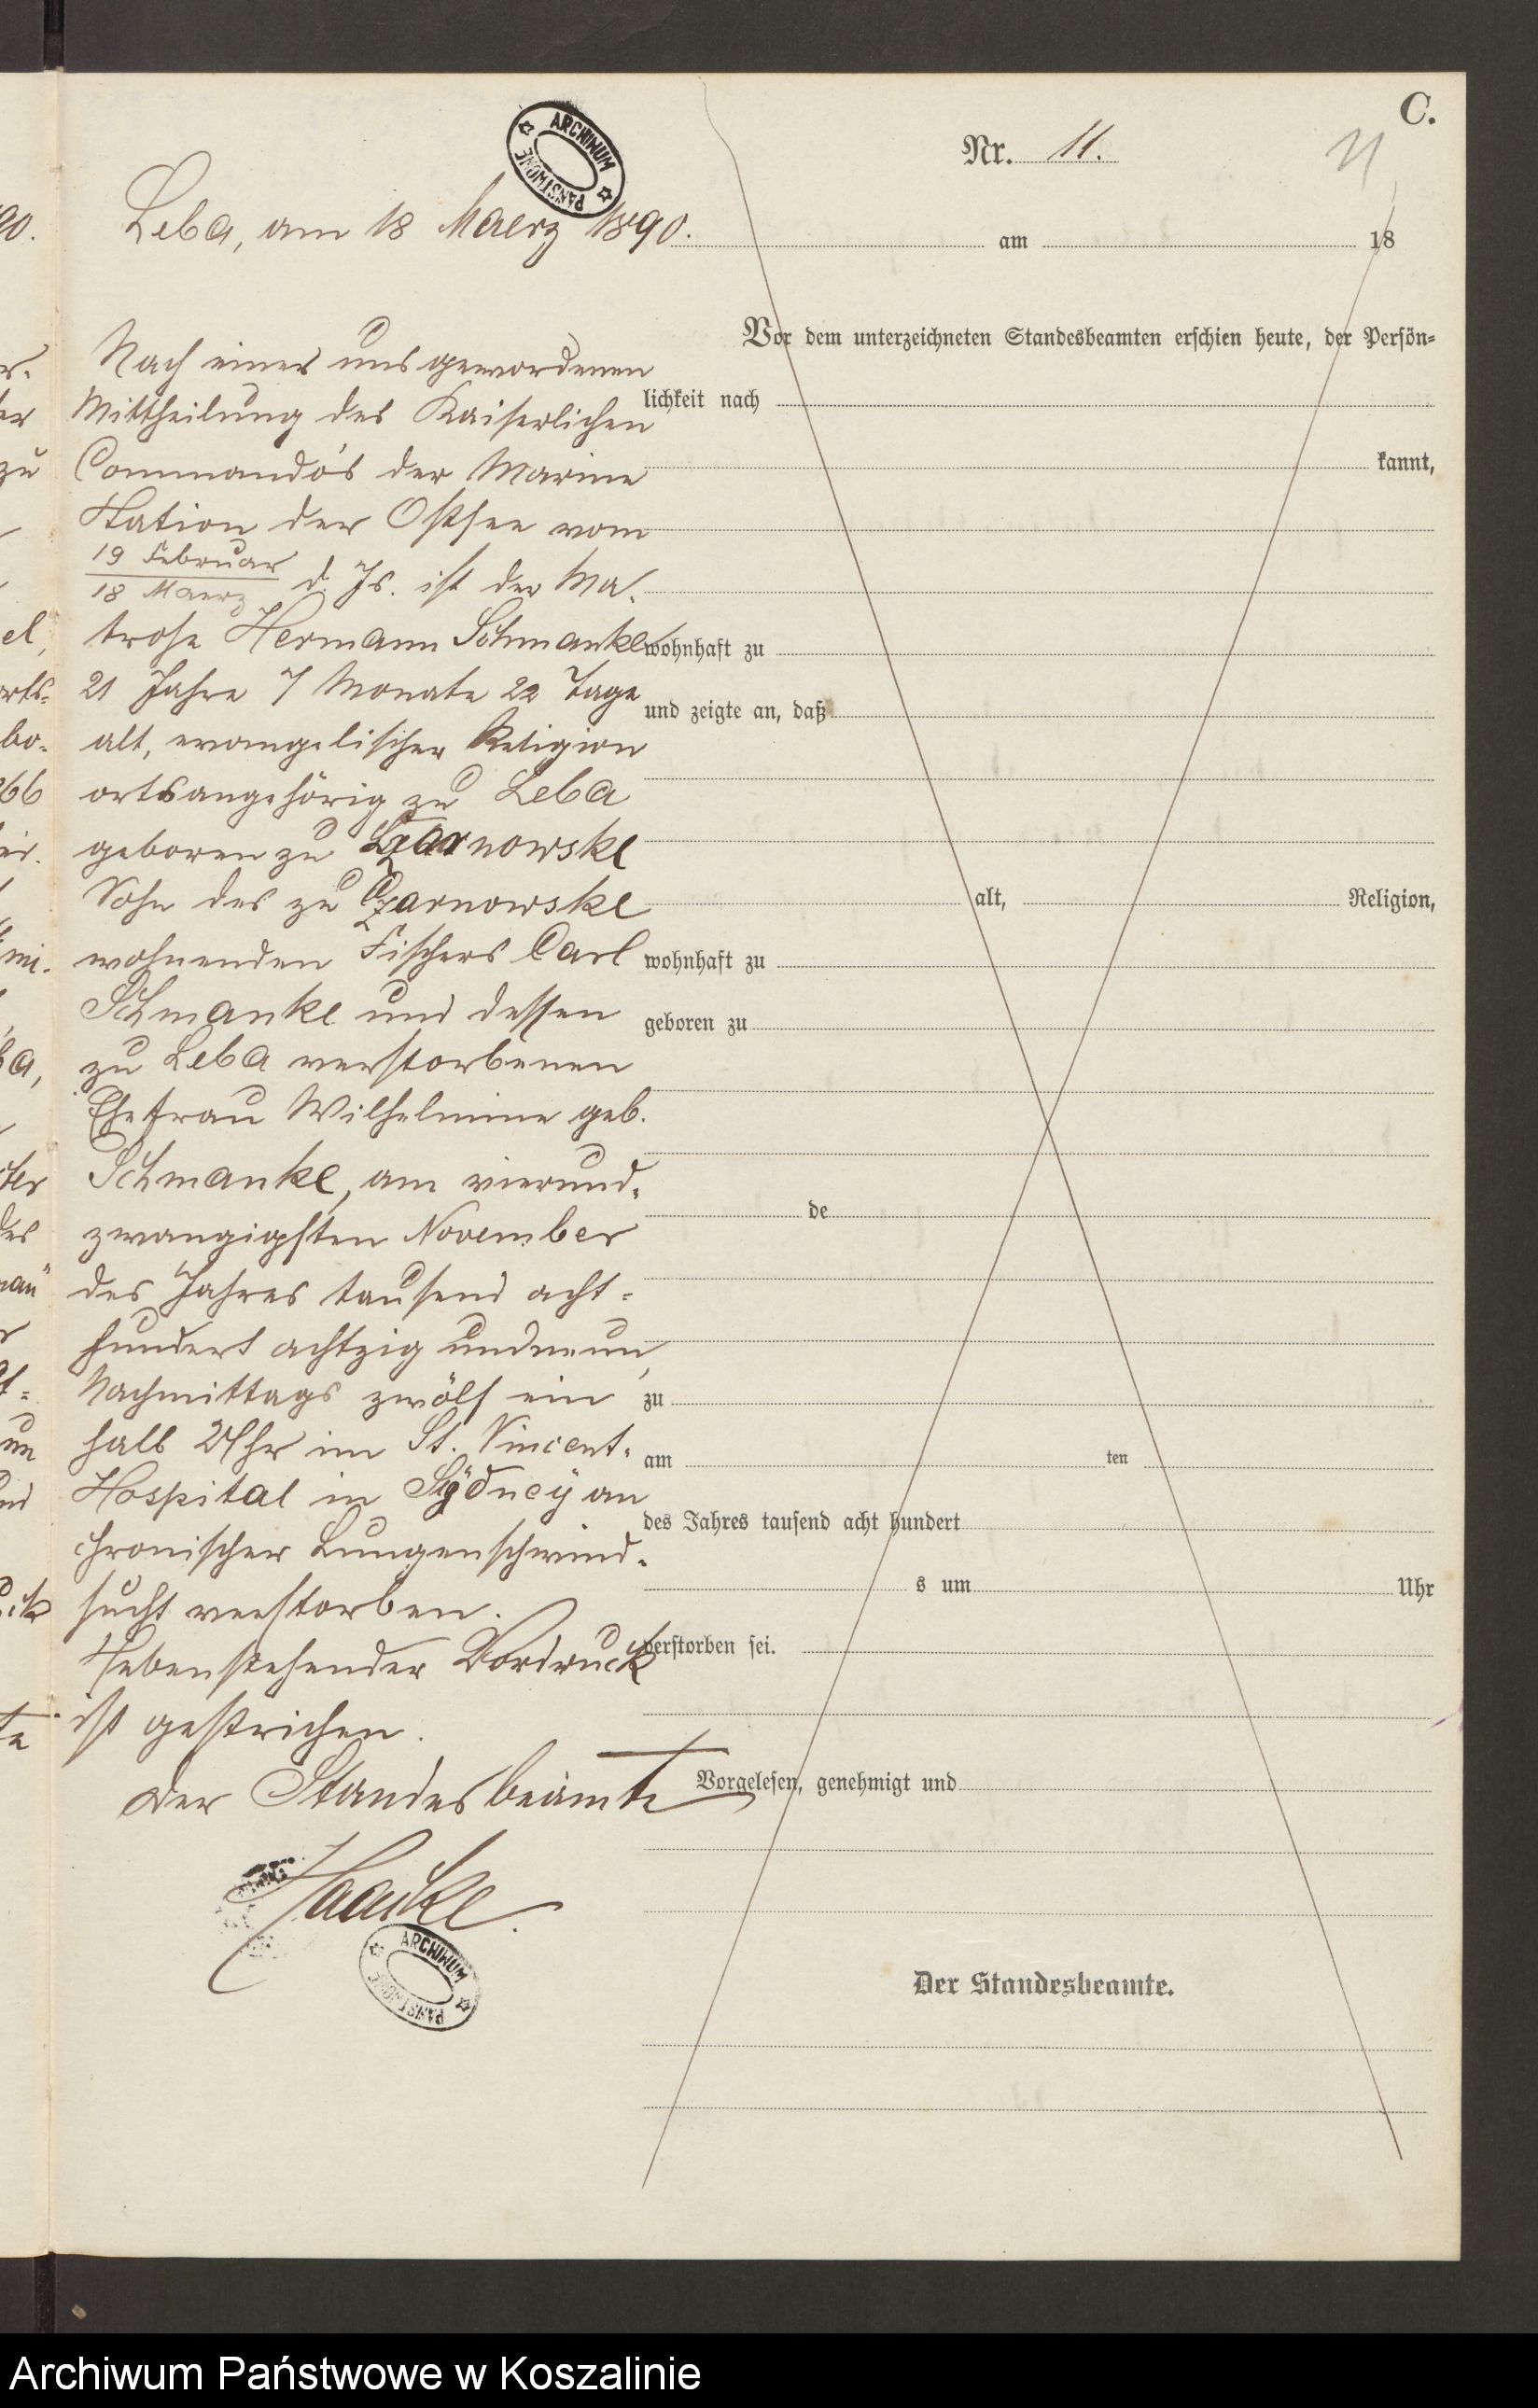 C.
Nr. 11.
11
Leba, am 18 Maerz 1890.
am 18
Nach einer uns gewordenen
Mittheilung des Kaiserlichen
Commando's der Marine
Station der Ostsee vom
19 Februar
18 Maerz d. Js. ist der Ma-
trose Hermann Schmanke
21 Jahre 7 Monate 22 Tage
alt, evangelischer Religion
ortsangehörig zu Leba
geboren zu Czarnowske
Sohn des zu Czarnowske
wohnenden Fischers Carl
Schmanke und dessen
zu Leba verstorbenen
Ehefrau Wilhelmine geb.
Schmanke, am vierund-
zwanzigsten November
des Jahres tausend acht-
hundert achtzig undneun,
Nachmittags zwölf ein
halb Uhr im St. Vincent-
Hospital in Sydney an
chronischer Lungenschwind-
sucht verstorben.
Nebenstehender Vordruck
ist gestrichen.
Der Standesbeamte
Haacke
Vor dem unterzeichneten Standesbeamten erschien heute, der Persön-
lichkeit nach
kannt,
wohnhaft zu
und zeigte an, daß
alt, Religion,
wohnhaft zu
geboren zu
de
zu
am ten
des Jahres tausend acht hundert
s um Uhr
verstorben sei.
Vorgelesen, genehmigt und
Der Standesbeamte.
ARCHIWUM PAŃSTWOWE
ARCHIWUM PAŃSTWOWE
Archiwum Państwowe w Koszalinie